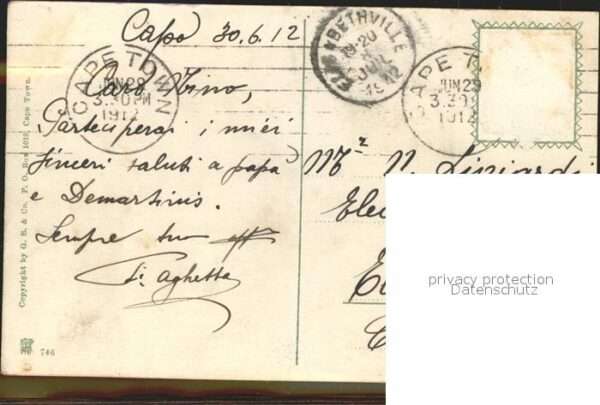 Capo 30.6.12
Caro Nino,
Parteciperai i miei
sinceri saluti a papà
e Demartinis.
Sempre tuo aff
Paghetta
CAPE TOWN
JUN 29
3.30 PM
1912
ELISABETHVILLE
19-20
JUIL
1912
CAPE T
JUN 29
3.30
1912
Mr N.
Elec
Copyright by G. B. & Co. P. O. Box 1019, Cape Town.
746
privacy protection
Datenschutz